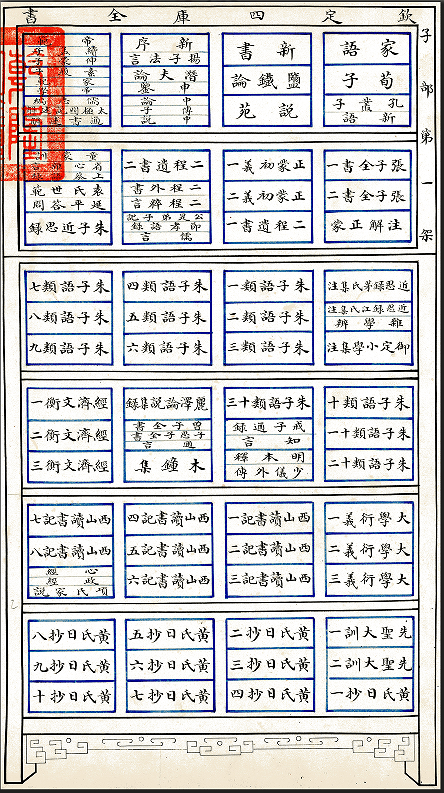 欽定四庫全書
子部第一架
家語
荀子
孔叢子
新語
新書
鹽鐵論
說苑
新序
揚子法言
潛夫論
申鑒
中論
傅子
中說
張子全書一
張子全書二
注解正蒙
正蒙初義一
正蒙初義二
二程遺書一
二程遺書二
二程外書
二程粹言
公是弟子記
節孝語錄
儒言
童蒙訓
袁氏世範
延平答問
朱子近思錄
近思錄茅氏集注
近思錄江氏集注
雜學辨
御定小學集注
朱子語類一
朱子語類二
朱子語類三
朱子語類四
朱子語類五
朱子語類六
朱子語類七
朱子語類八
朱子語類九
朱子語類十
朱子語類十一
朱子語類十二
朱子語類十三
戒子通錄
知言
明本釋
少儀外傳
麗澤論說集錄
曾子全書
子思子全書
邇言
木鐘集
經濟文衡一
經濟文衡二
經濟文衡三
大學衍義一
大學衍義二
大學衍義三
西山讀書記一
西山讀書記二
西山讀書記三
西山讀書記四
西山讀書記五
西山讀書記六
西山讀書記七
西山讀書記八
心經
政經
項氏家說
先聖大訓一
先聖大訓二
黃氏日抄一
黃氏日抄二
黃氏日抄三
黃氏日抄四
黃氏日抄五
黃氏日抄六
黃氏日抄七
黃氏日抄八
黃氏日抄九
黃氏日抄十